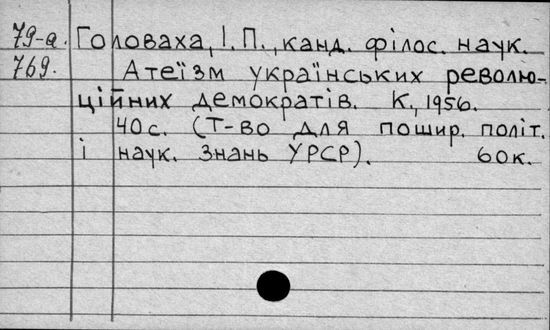 79-а. Головаха, І. П., канд. філос. наук.
769. Атеїзм українських револю-
ційних демократів. К., 1956.
40с. (Т-во для пошир. політ.
і наук. знань УРСР). 60к.